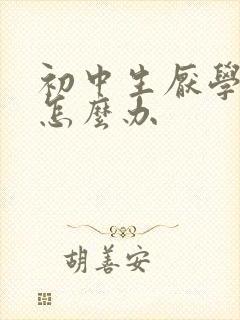 初中生厌學
怎麼办
胡善安